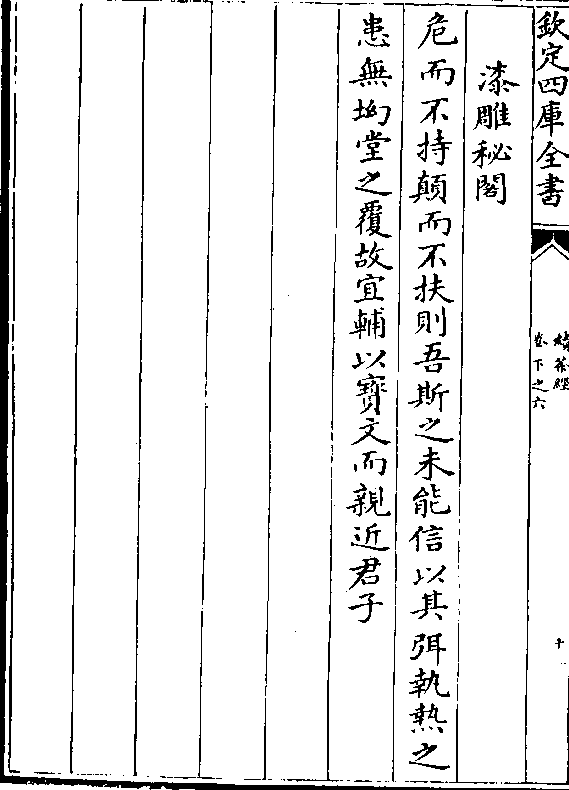 欽定四庫全書
續茶經
卷下之六
十
漆雕秘閣
危而不持顛而不扶則吾斯之未能信以其弭執熱之
患無坳堂之覆故宜輔以寳文而親近君子